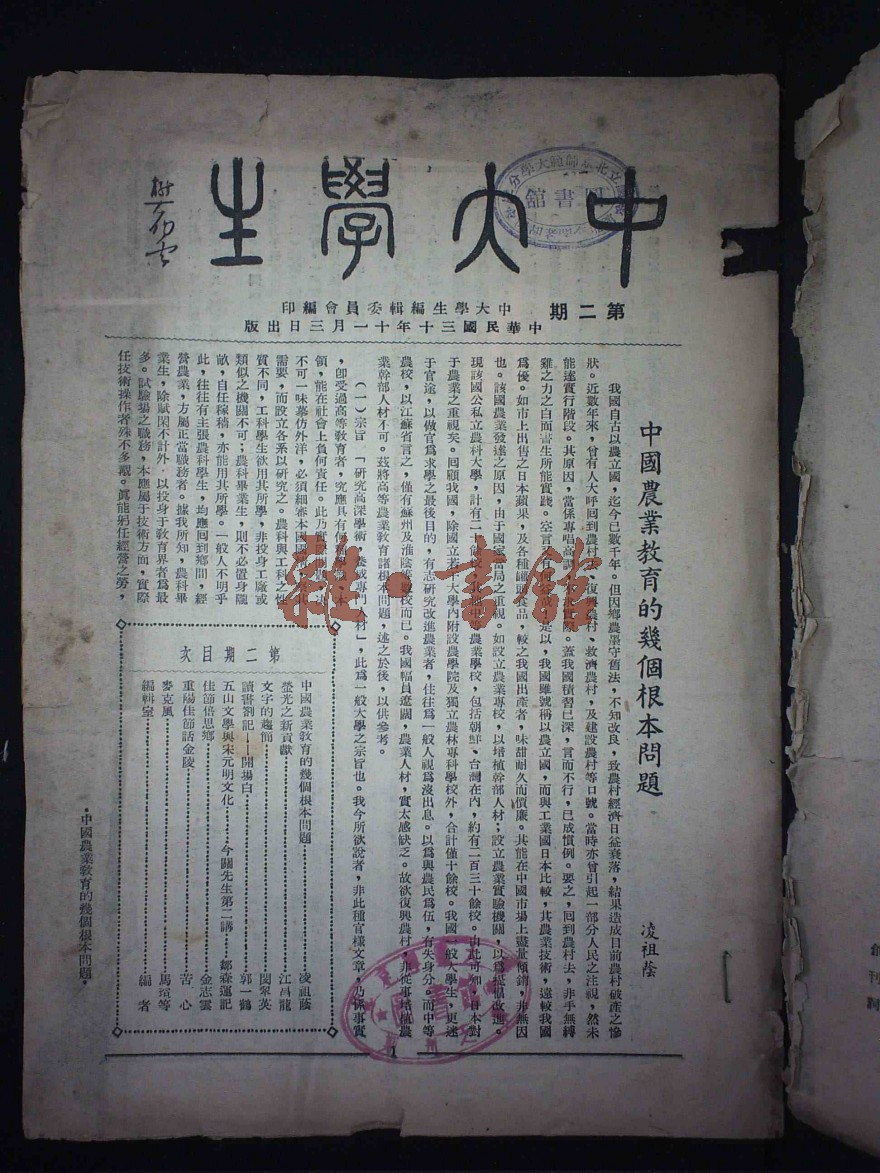 中大學生
第二期
中大學生編輯委員會編印
中華民國三十年十一月三日出版
中國農業教育的幾個根本問題
凌祖蔭
我國自古以農立國，迄今已數千年。但因鄉農墨守舊法，不知改良，致農村經濟日益衰落，結果造成目前農村破產之慘
狀。近數年來，曾有人大呼回到農村去、復興農村、救濟農村，及建設農村等口號。當時亦曾引起一部分人民之注視，然未
能達實行階段。其原因，當係專唱高調，不求實際。蓋我國積習已深，言而不行，已成慣例。要之，回到農村去，非手無縛
雞之力之白面書生所能實踐。空言以，我國雖號稱以農立國，而與工業國日本比較，其農業技術，遠較我國
爲優。如市上出售之日本蘋果，及各種罐頭食品，較之我國出產者，味甜耐久而價廉。其能在中國市場上盡量傾銷，非無因
也。該國農業發達之原因，由于國家當局之重視。如設立農業專校，以培植幹部人材；設立農業實驗機關，以爲提倡改進。
現該國公私立農科大學，計有二十餘校，其他中等農業學校，包括朝鮮、台灣在內，約有二百三十餘校。由此可知，日本對
于農業之重視矣。囘顧我國，除國立若干大學內附設農學院及獨立農林專科學校外，合計僅十餘校。我國一般大學生，更迷
于官途，以做官爲求學之最後目的，有志研究改進農業者，往往爲一般人視爲沒出息。以爲與農民爲伍，有失身分。而中等
農校，以江蘇省言之，僅有蘇州及淮陰等數校而已。我國幅員遼闊，農業人材，實太感缺乏。故欲復興農村，非從事培植農
業幹部人材不可。茲將高等農業教育諸根本問題，述之於後，以供參考。
（一）宗旨　「研究高深學術，養成專門人材」，此爲一般大學之宗旨也。我今所欲說者，非此種官樣文章，乃係事實
，卽受過高等教育者，究應具有何種學識本
領，能在社會上負何責任。此乃實際問題，
不可一味摹仿外洋，必須細審本國國情
需要，而設立各系以研究之。農科與工科之性
質不同，工科學生欲用其所學，非投身工廠或
類似之機關不可；農科畢業生，則不必置身隴
畝，自任稼穡，亦能用其所學。一般人不明乎
此，往往有主張農科學生，均應回到鄉間，經
營農業，方屬正當職務者。據我所知，農科畢
業生，除賦閑不計外，以投身于教育界者爲最
多。試驗場之職務，本應屬于技術方面，實際
任技術操作者殊不多覯。眞能躬任經營之勞，
第二期目次
中國農業教育的幾個根本問題……凌祖蔭
螢光之新貢獻……江昌龍
文字的趨簡……閔翠英
讀書劄記——開場白……郭一鶴
五山文學與宋元明文化……今關先生第二講……鄒森運記
佳節倍思鄉……金志雲
重陽佳節話金陵……苦心
麥克風……馬瓚等
編輯室……編者
·中國農業教育的幾個根本問題·
1
雜·書館
圖書館